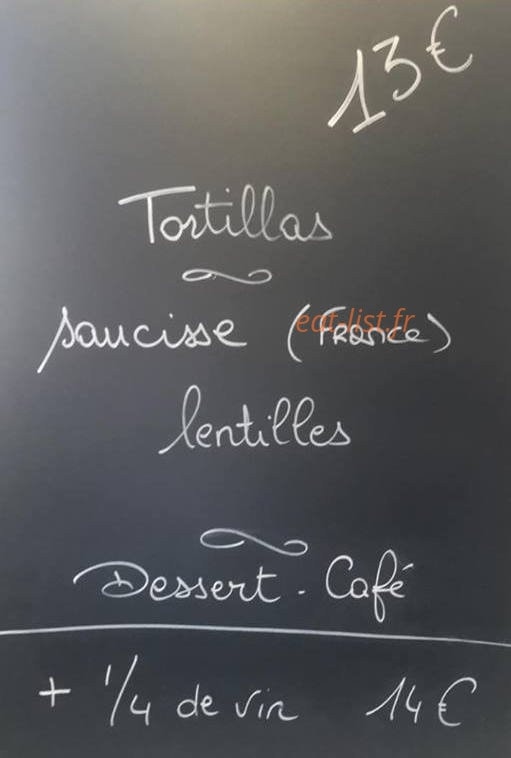 13€
Tortillas
saucisse (France)
eat-list.fr
lentilles
Dessert - Café
+ 1/4 de vin 14€